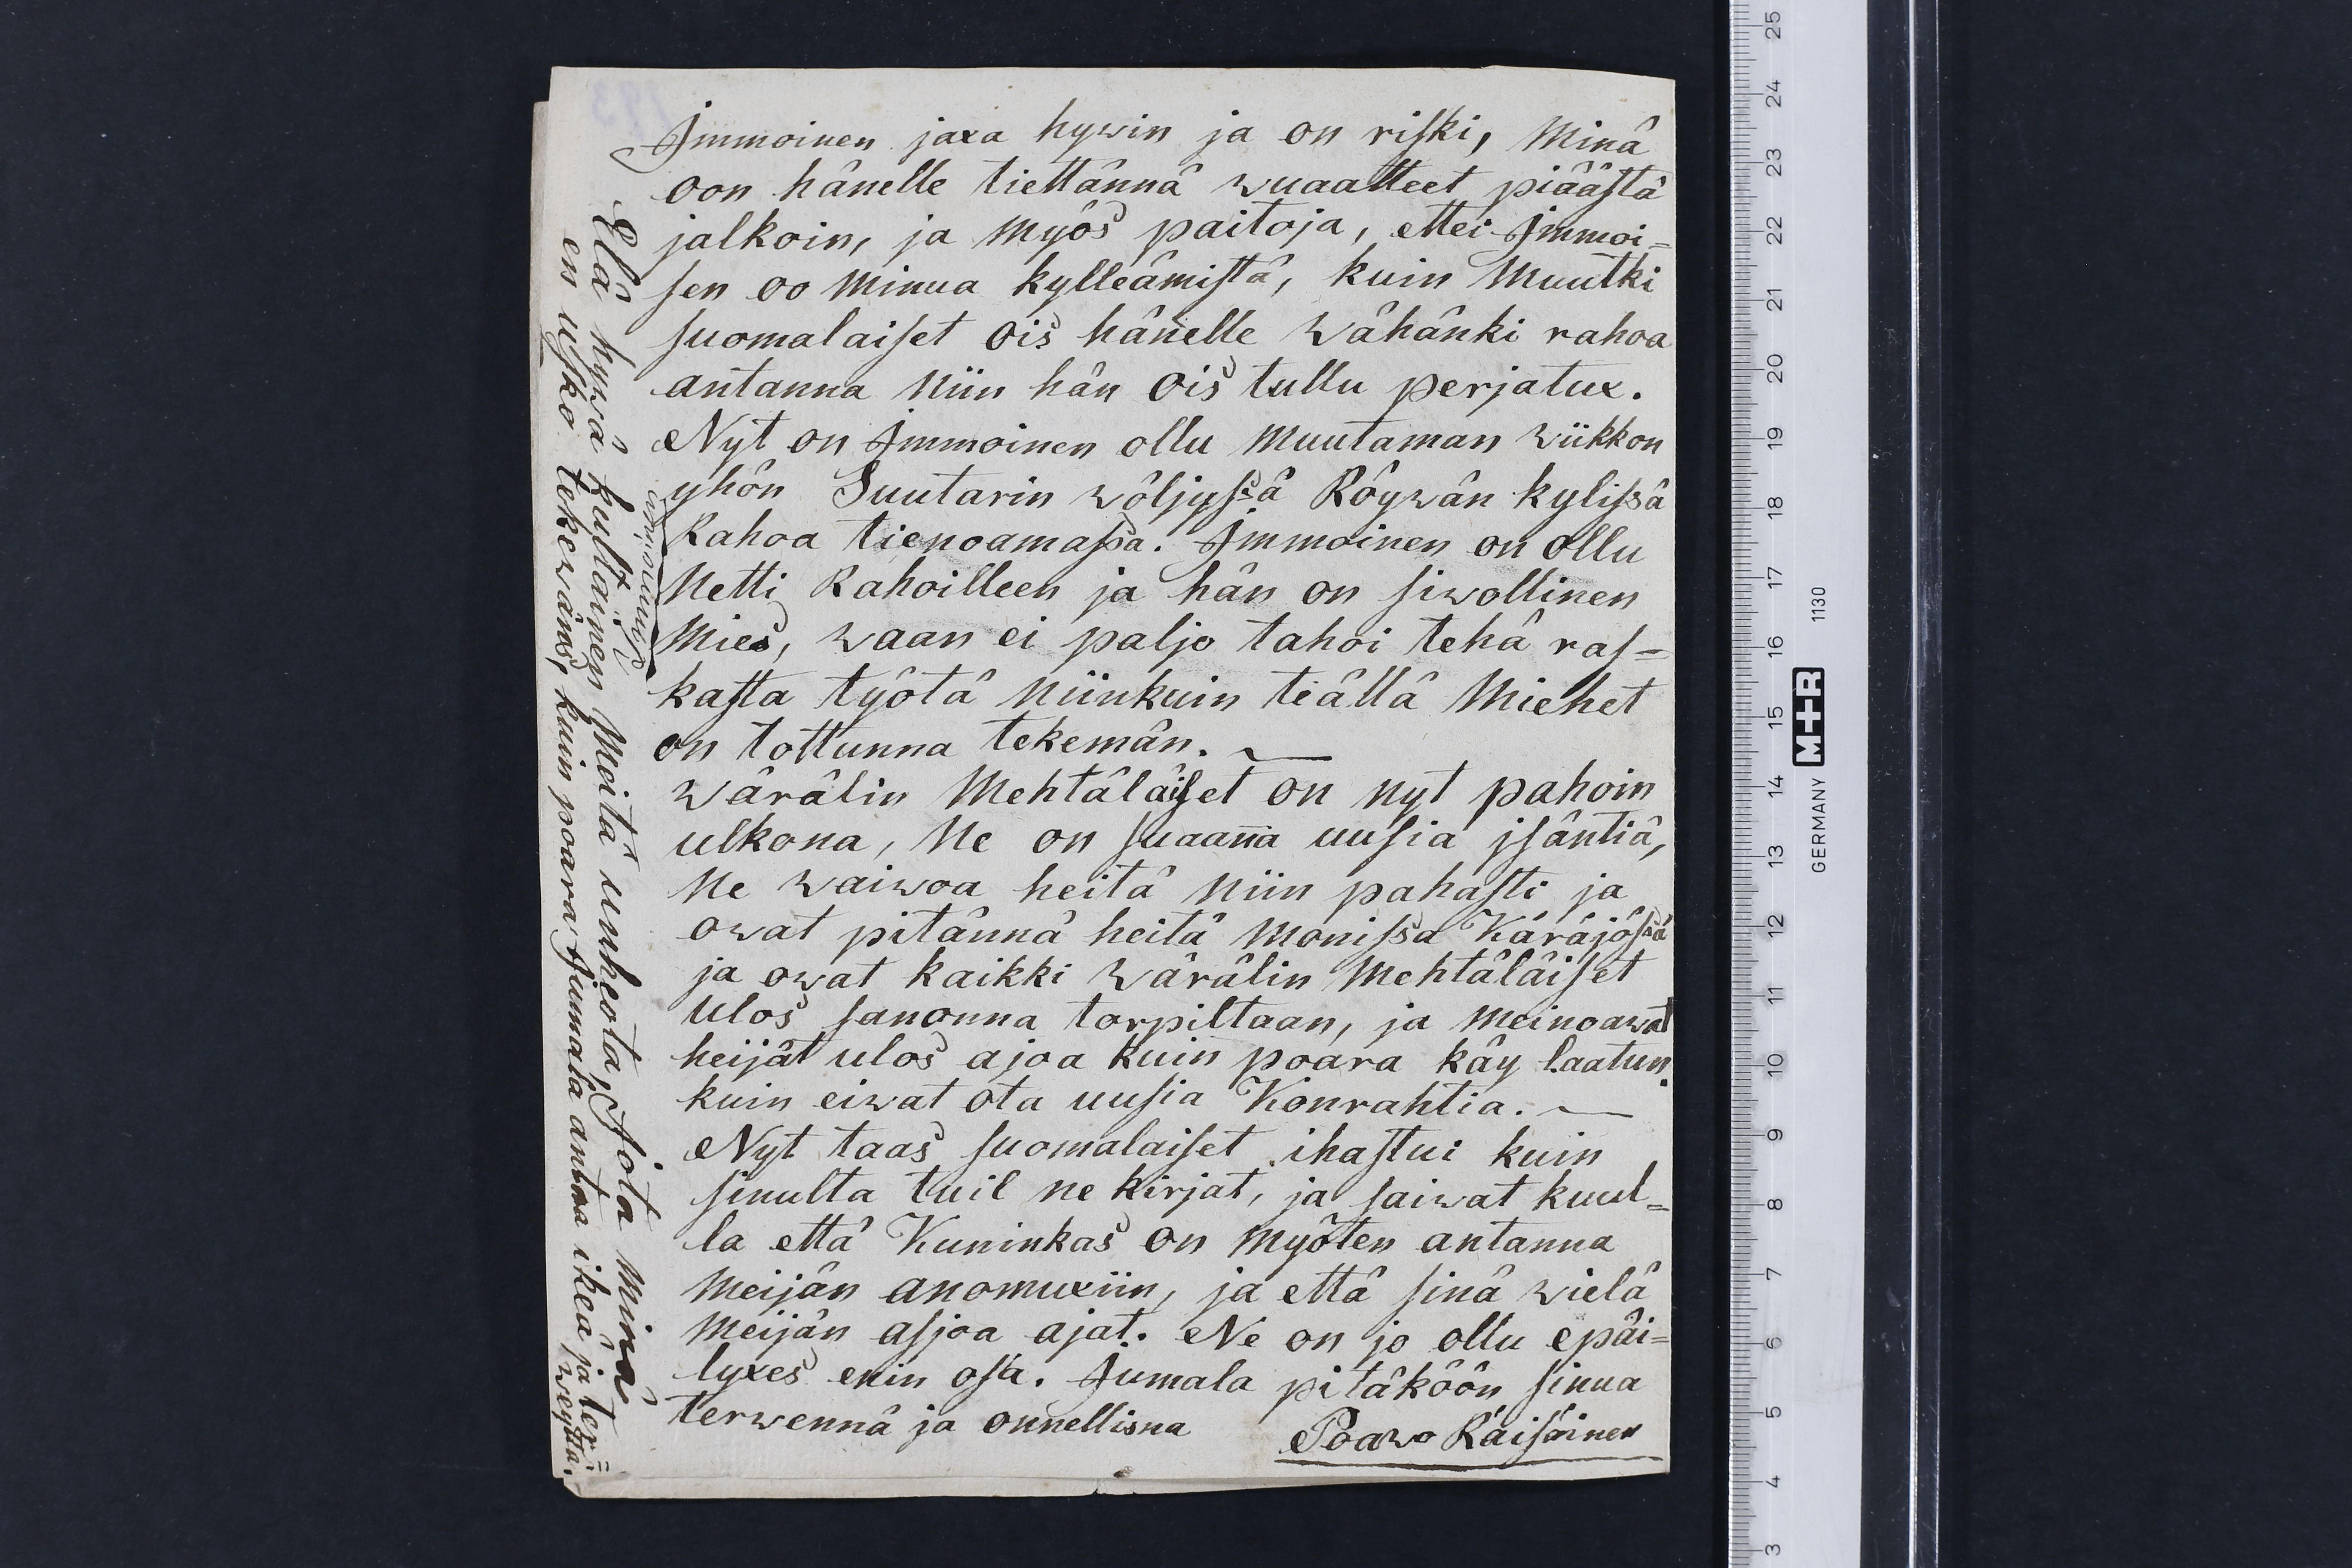 Immoinen jaxa hywin ja on riski, Minä
oon hänelle tiettännä wuaatteet piäästä
jalkoin, ja Myös paitoja, ettei Immoi=
sen oo Minua kylleämistä, kuin Muutki
suomalaiset ois hänelle Wähänki rahoa
antanna Niin hän Ois tullu perjatux.
Nyt on Immoinen ollu Muutaman Wiikkon
yhön Suutarin wöljyssä Röywän kylissä
Rahoa tienoamassa. Immoinen on Ollu
Netti Rahoilleen ja hän on siwollinen
Mies, waan ei paljo tahoi tehä ras=
kasta työtä Niinkuin teällä Miehet
on tottunna tekemän.
Wärälin Mehtäläiset on nyt pahoin
ulkona, Ne on suaanna uusia jsäntiä,
Ne waiwoa heitä Niin pahasti ja
owat pitännä heitä Monissa Käräjössä
ja owat kaikki Wärälin Mehtäläiset
Ulos sanonna torpiltaan, ja Meinoawat
heijät ulos ajoa kuin poara käy laatun
kuin eiwat ota uusia Konrahtia.
Nyt taas suomalaiset ihastui kuin
sinulta tuil ne kirjat, ja saiwat kuul=
la että Kuninkas on Myöten antanna
Meijän anomuxiin, ja että sinä wielä
Meijän asjoa ajat. Ne on jo ollu epäi=
lyxes enin osa. Jumala pitäköön sinua
terwennä ja onnellisna
Poawo Räisäinen
Elä hywä kultainen Meitä unheota, Jota Minä
en usko tekewäns, kuin poara Jummala antaa ikeä ja ter=
weyttä.